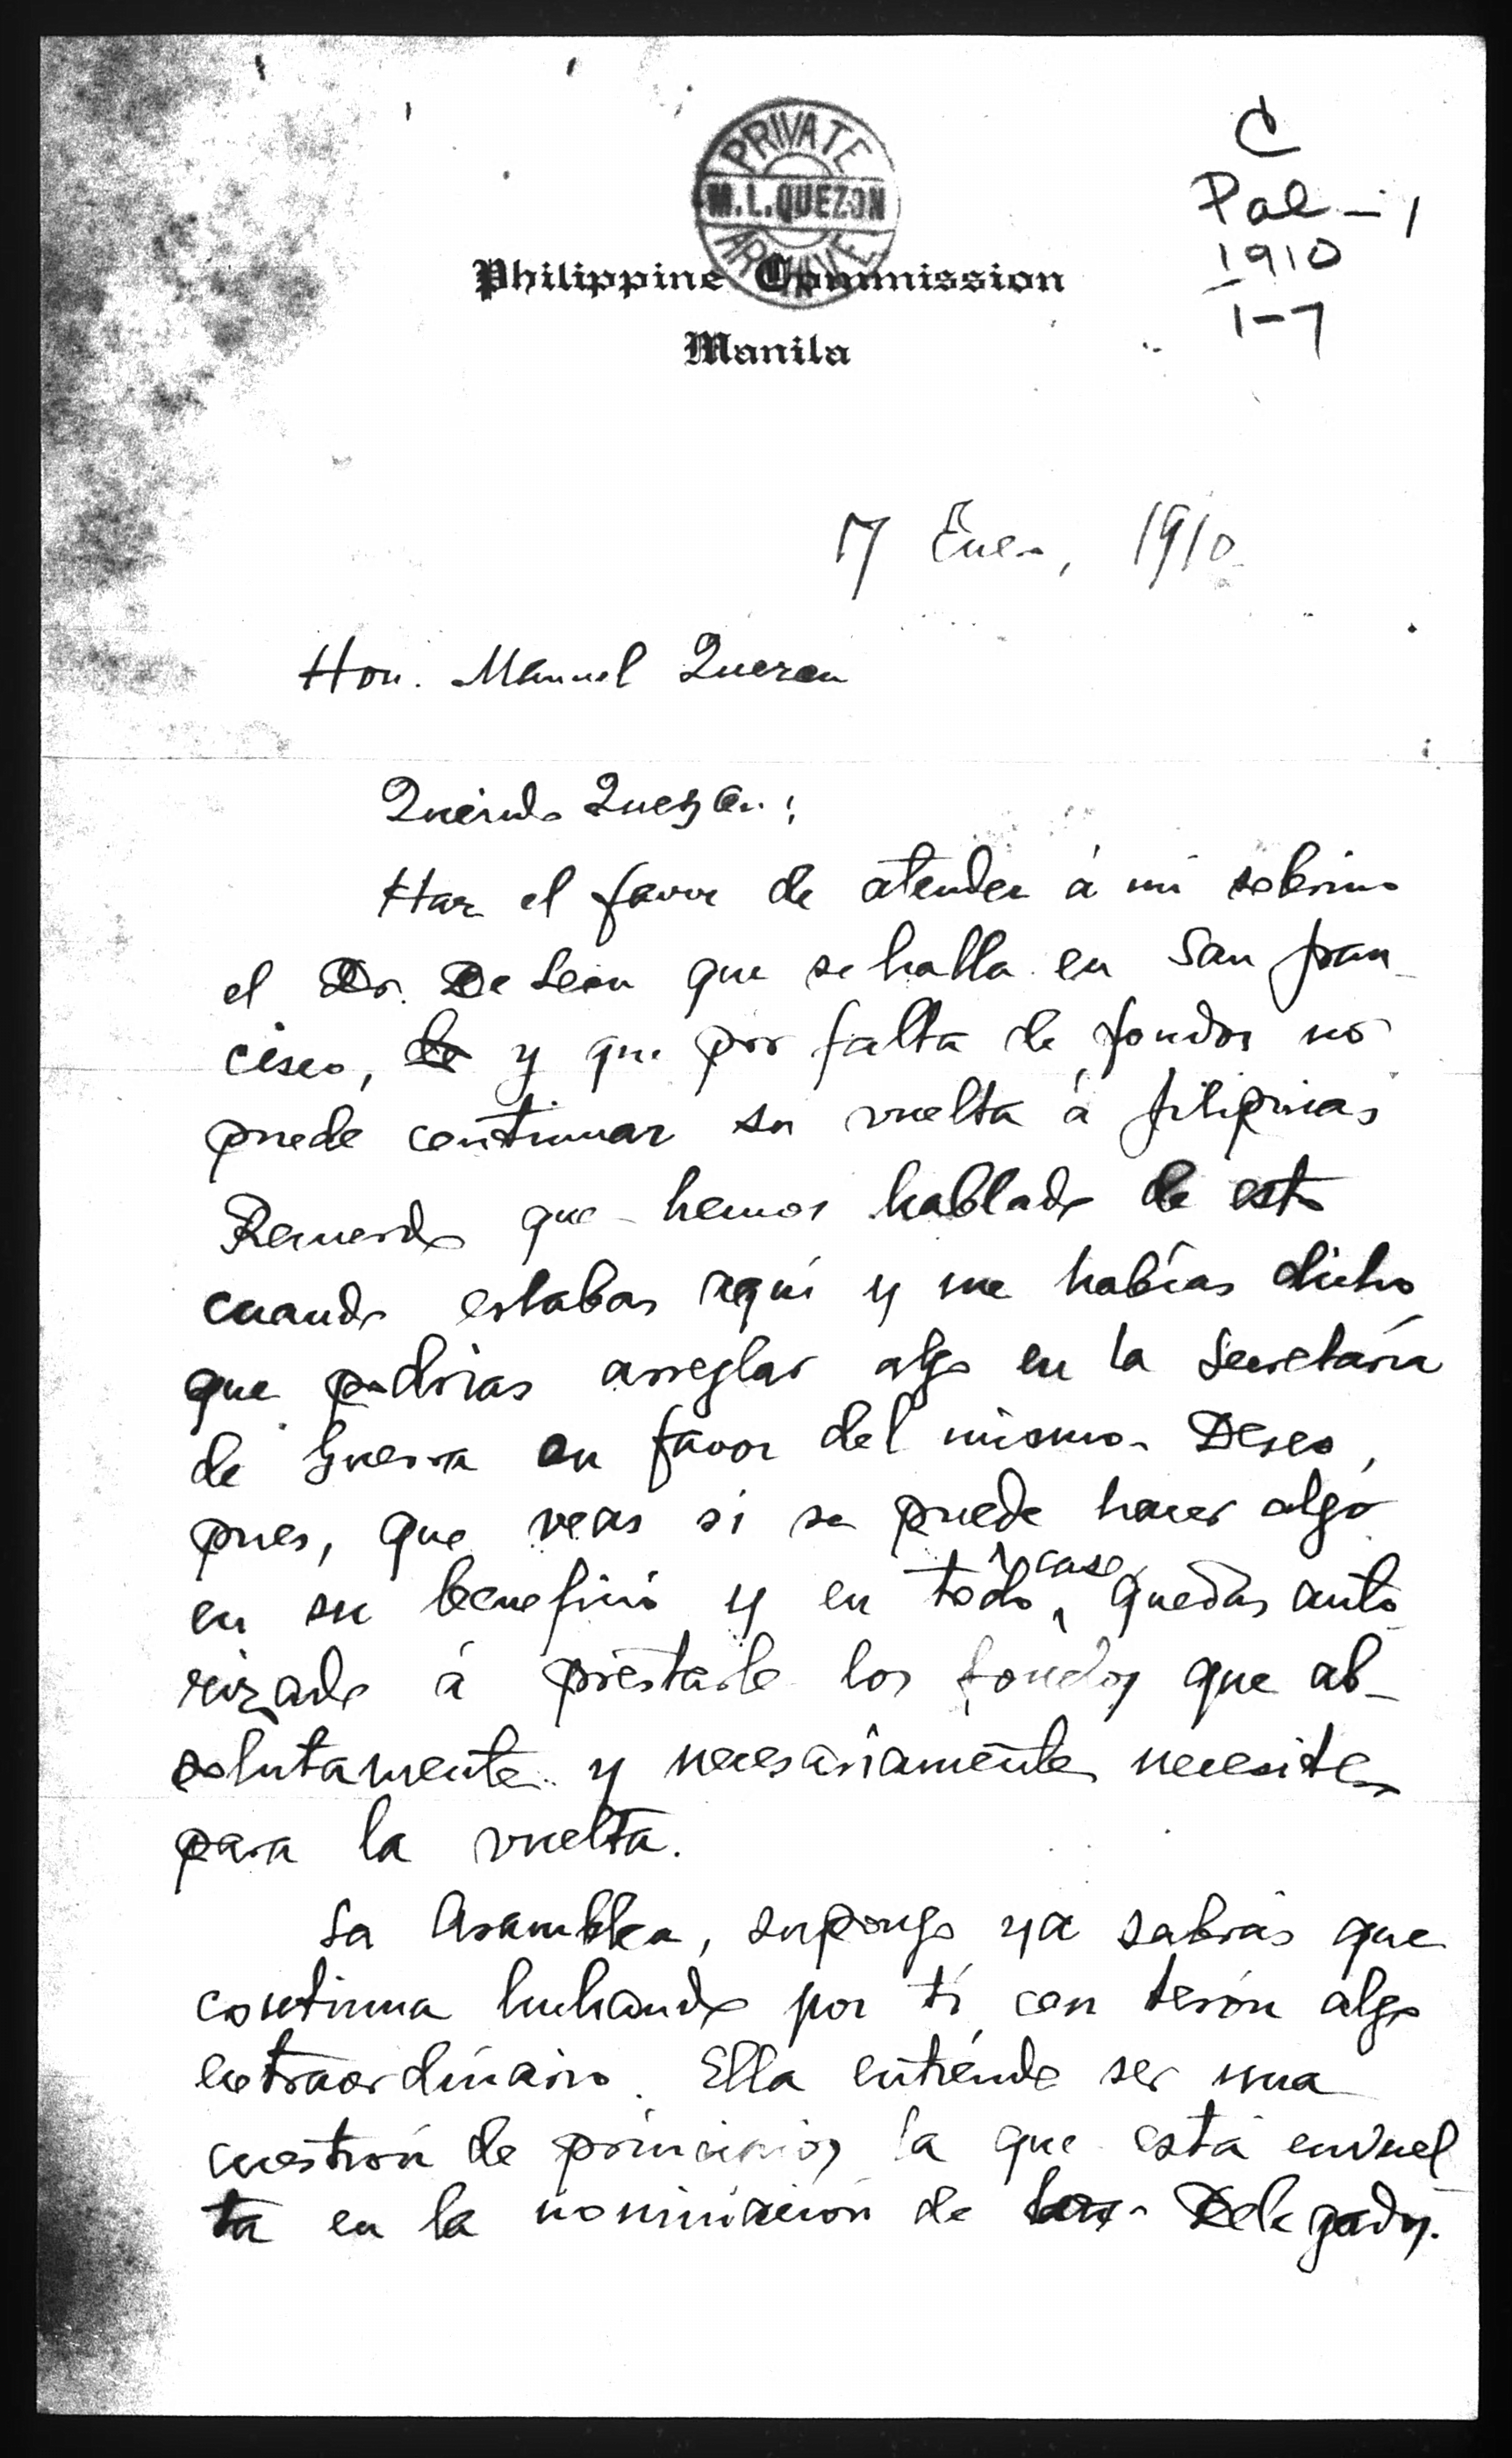 PRIVATE
M.L.QUEZON
ARCHIVE
C
Pal-1
1910
1-7
Philippine Commission
Manila
17 Enero, 1910
Hon. Manuel Quezon
Querido Quezon:
Haz el favor de atender á mi sobrino
el Dr. De Leon que se halla en San Fran-
cisco, de y que por falta de fondos no
puede continuar su vuelta á Filipinas
Recuerdo que hemos hablado de esto
cuando estabas aquí y me habías dicho
que podrias arreglar algo en la Secretaría
de Guerra en favor del mismo. Deseo,
pues, que veas si se puede hacer algo
en su beneficio y en todo caso, quedas auto
rizado á prestarle los fondos que ab-
solutamente y necesariamente necesite
para la vuelta.
La Asamblea, supongo ya sabrás que
continua luchando por tí con tesón algo
extraordinario. Ella entiende ser una
cuestión de principios la que está envuel
ta en la nominación de los Delegados.